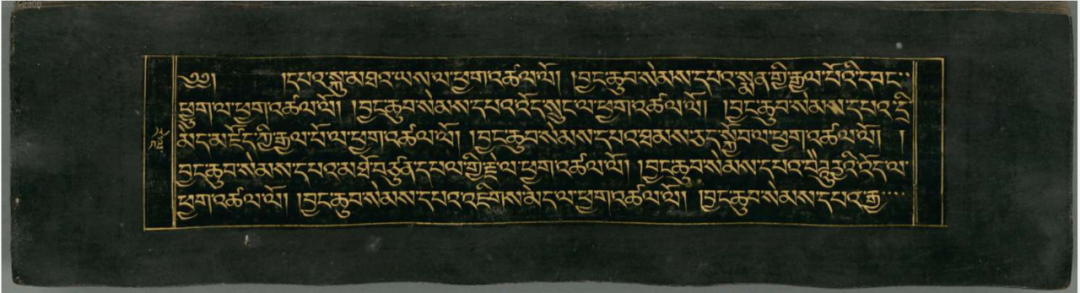 ༄༅། །དཔའ་སྐུ་མཐའ་ཡས་ལ་ཕྱག་འཚལ་ལོ། །བྱང་ཆུབ་སེམས་དཔའ་སྨན་གྱི་རྒྱལ་པོའི་དབང་
ཕྱུག་ལ་ཕྱག་འཚལ་ལོ། །བྱང་ཆུབ་སེམས་དཔའ་འོད་སྲུང་ལ་ཕྱག་འཚལ་ལོ། །བྱང་ཆུབ་སེམས་དཔའ་དྲི་
མེད་མཛོད་ཀྱི་རྒྱལ་པོ་ལ་ཕྱག་འཚལ་ལོ། །བྱང་ཆུབ་སེམས་དཔའ་ཐམས་ཅད་སྐྱོབ་ལ་ཕྱག་འཚལ་ལོ། །
བྱང་ཆུབ་སེམས་དཔའ་མཐོ་བཙུན་དཔལ་གྱི་རྩེ་ལ་ཕྱག་འཚལ་ལོ། །བྱང་ཆུབ་སེམས་དཔའ་བཻ་ཌཱུརྱའི་འོད་ལ་
ཕྱག་འཚལ་ལོ། །བྱང་ཆུབ་སེམས་དཔའ་འཇིགས་མེད་ལ་ཕྱག་འཚལ་ལོ། །བྱང་ཆུབ་སེམས་དཔའ་རྒྱ་